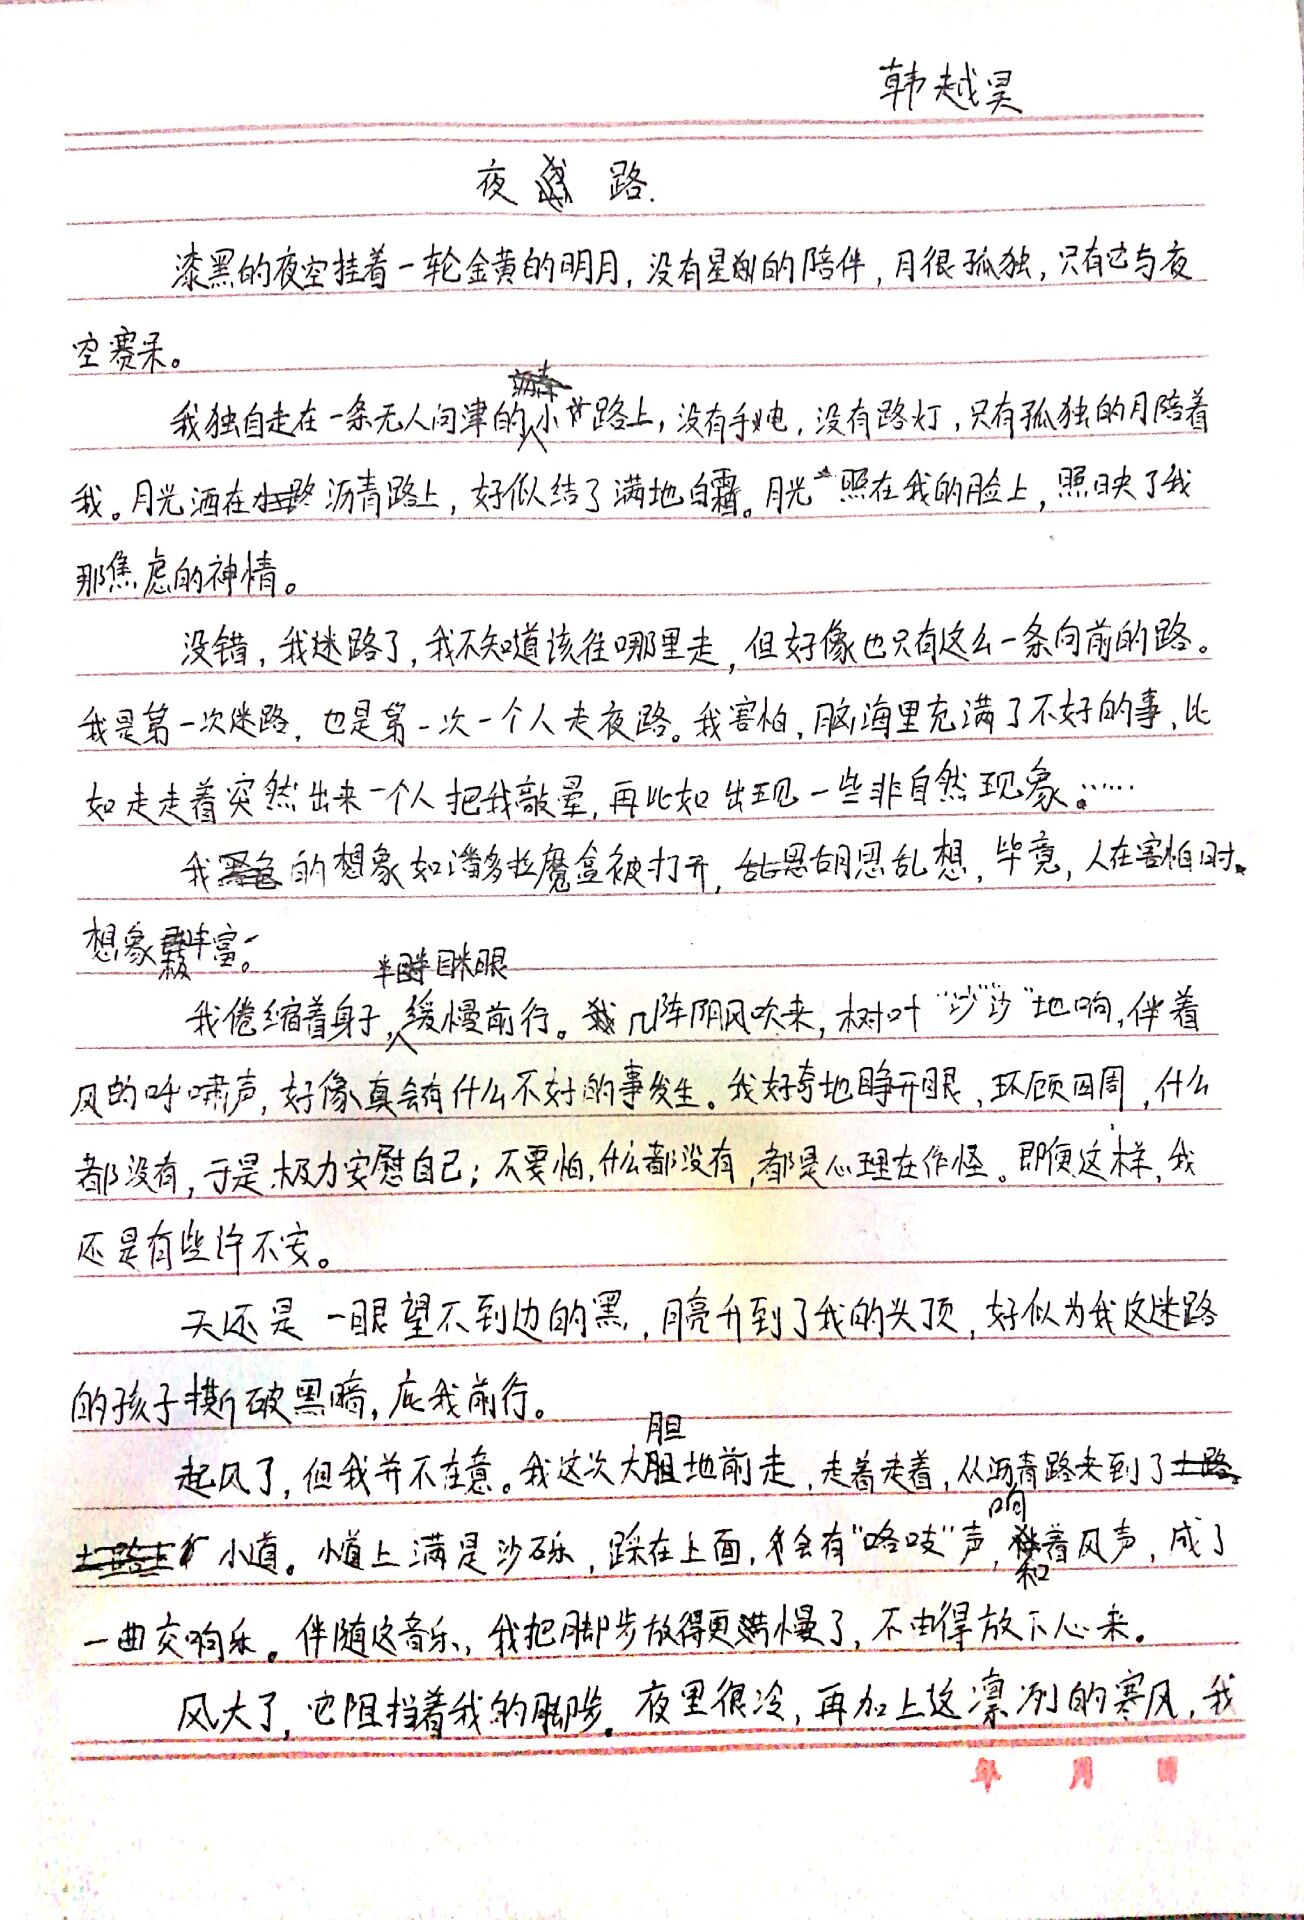 韩越昊
夜路.
漆黑的夜空挂着一轮金黄的明月,没有星的陪伴,月很孤独,只有它与夜
空赛呆。
我独自走在一条无人问津的小路上,没有手电,没有路灯,只有孤独的月陪着
我。月光洒在沥青路上,好似结了满地白霜。月光照在我的脸上,照映了我
那焦虑的神情。
没错,我迷路了,我不知道该往哪里走,但好像也只有这么一条向前的路。
我是第一次迷路,也是第一次一个人走夜路。我害怕,脑海里充满了不好的事,比
如走走着突然出来一个人把我敲晕,再比如出现一些非自然现象……
我的想象如潘多拉魔盒被打开,胡思乱想,毕竟,人在害怕时,
想象极丰富。
半眯眼
我倦缩着身子,缓慢前行。几阵阴风吹来,树叶“沙沙”地响,伴着
风的呼啸声,好像真会有什么不好的事发生。我好奇地睁开眼,环顾四周,什么
都没有,于是极力安慰自己;不要怕,什么都没有,都是心理在作怪。即便这样,我
还是有些许不安。
天还是一眼望不到边的黑,月亮升到了我的头顶,好似为我这迷路
的孩子撕破黑暗,庇我前行。
胆
起风了,但我并不在意。我这次大胆地前走,走着走着,从沥青路来到了
响
小道。小道上满是沙砾,踩在上面,会有“咯吱”声,和着风声,成了
一曲交响乐。伴随这音乐,我把脚步放得更慢了,不由得放下心来。
风大了,它阻挡着我的脚步。夜里很冷,再加上这凛冽的寒风,我
年 月 日